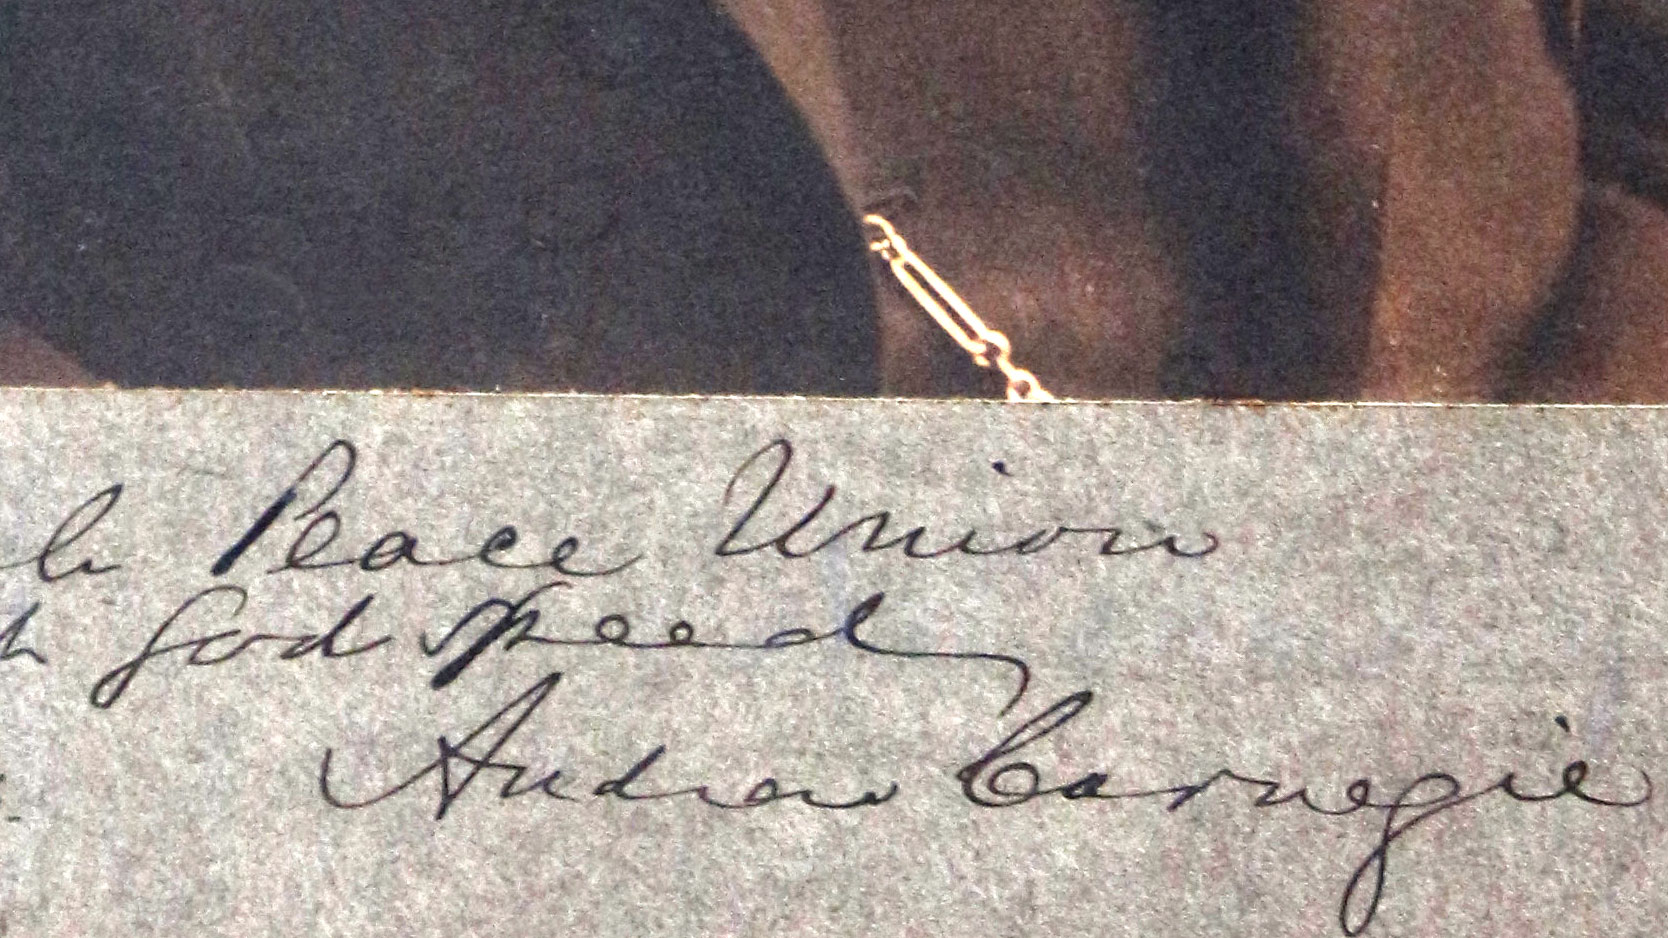 Peace Union
God speed
Andrew Carnegie